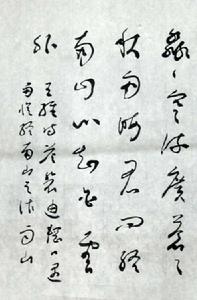 淼〻寒流廣蒼〻
秋雨晦君問終
南山心知白雲
外
王維詩答裴迪輞口遇
雨憶終南山之作